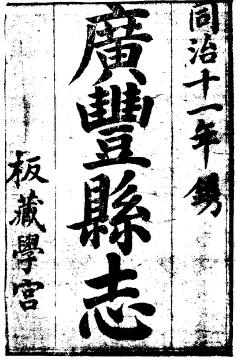 同治十一年鐫
廣豐縣志
板藏學宮